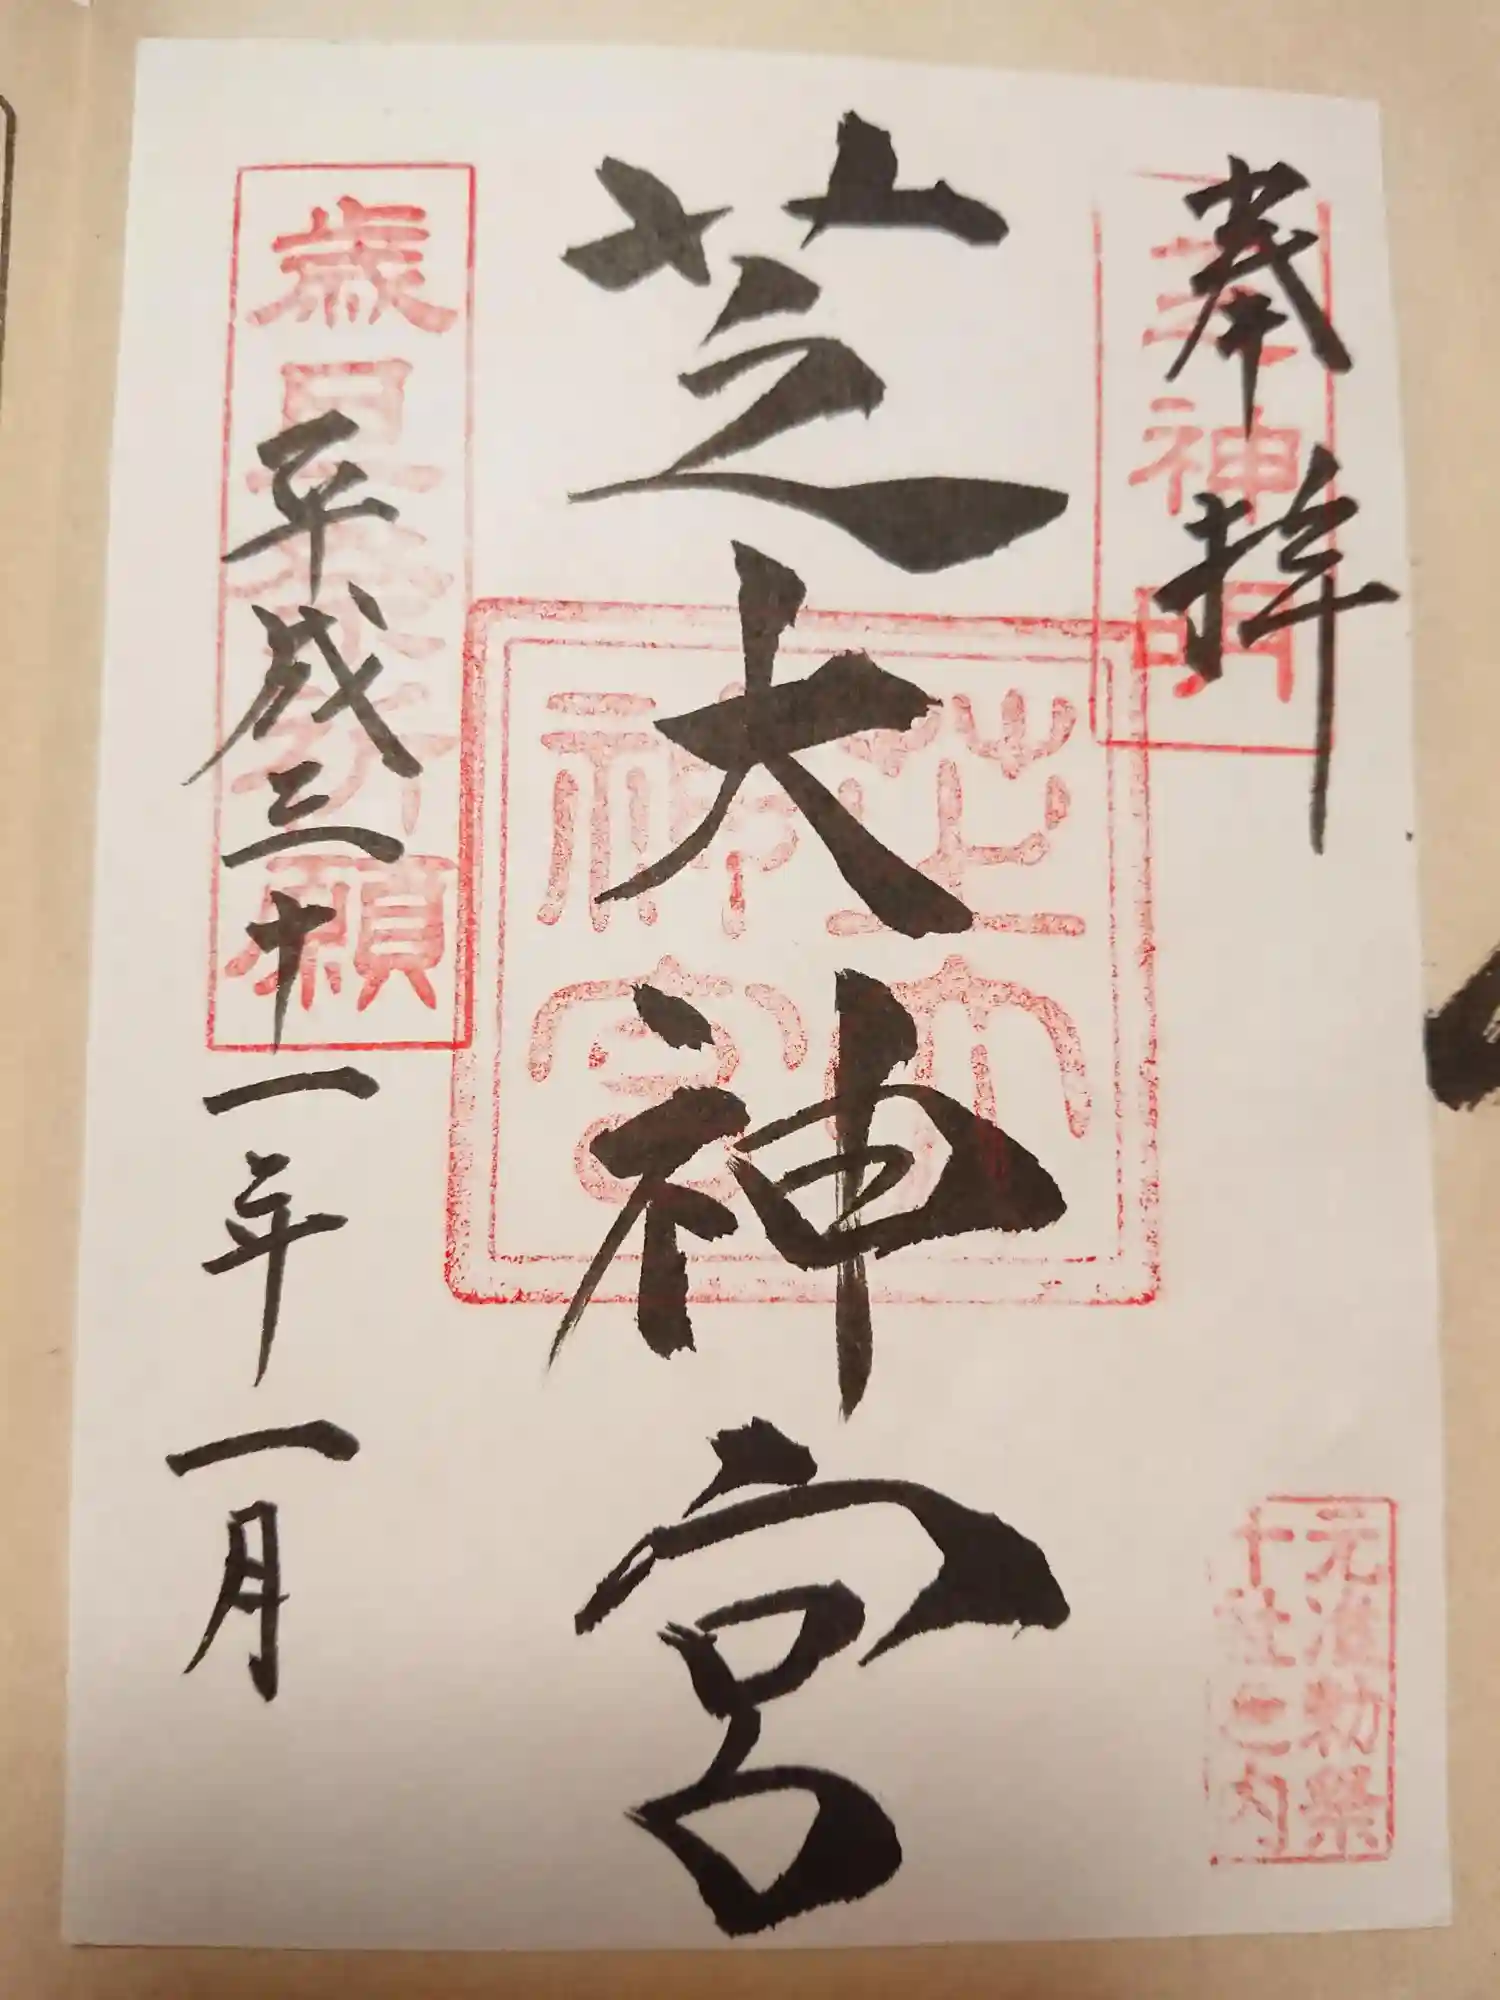 奉拝
芝神明
元准勅祭
十社之内
芝大神宮
芝大
神宮
歳旦祭祈願
平成三十一年一月